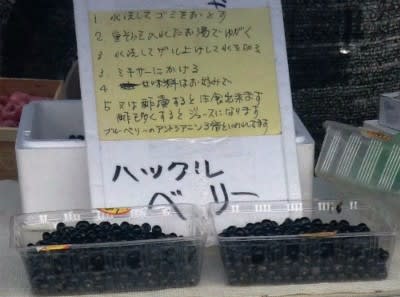 1 水洗してゴミをおとす
2 重そうを入れたお湯でゆがく
3 水洗してザル上げして水を切る
3 ミキサーにかける
4 味料はお好みで
5 又は酢漬すると 出来ます
酢も少くするとジュースになります
ブルーベリーのアントシアニン3倍といわれてます
ハックル
ベリー